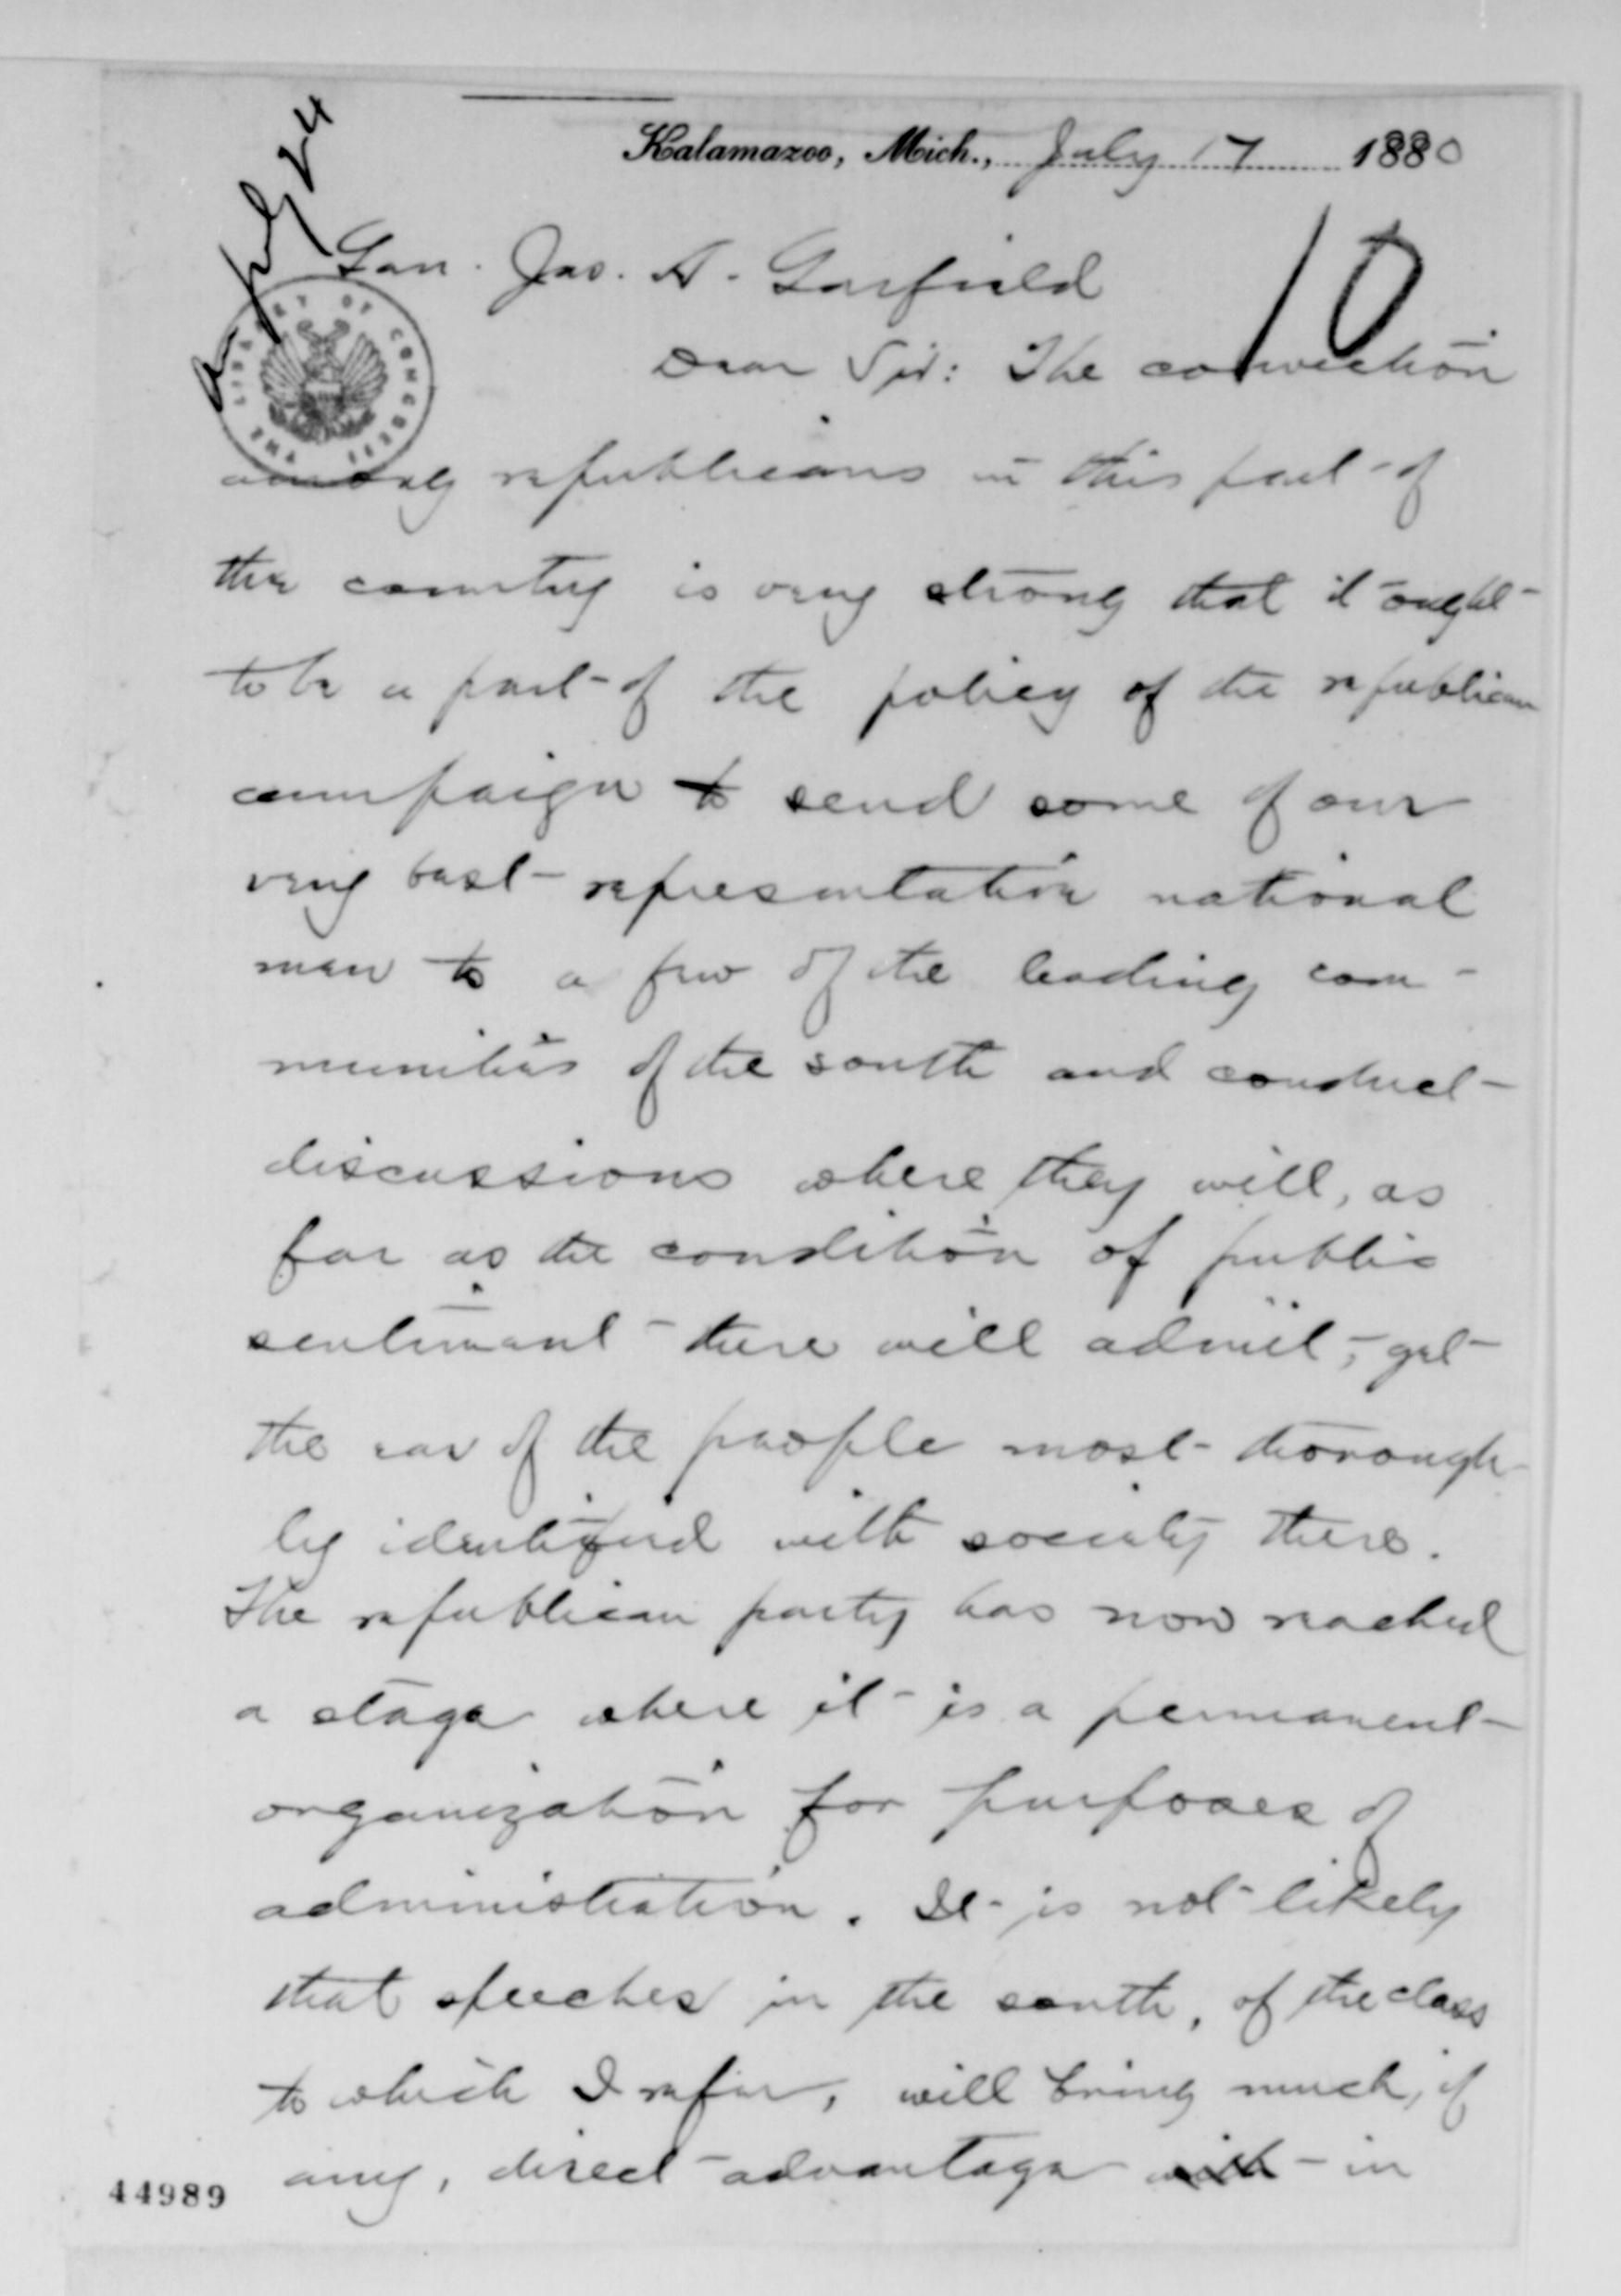 Kalamazoo, Mich., July 17 1880
July 24
10
Gen. Jas. A. Garfield
Dear Sir: The conviction
THE LIBRARY OF CONGRESS
among republicans in this part of
the country is very strong that it ought
to be a part of the policy of the republican
campaign to send some of our
very best representation national
men to a few of the leading com-
munities of the south and conduct
discussions where they will, as
far as the condition of public
sentiment there will admit, get
the ear of the people most thorough-
ly identified with society there.
The republican party has now reached
a stage where it is a permanent
organization for purposes of
administration. It is not likely
that speeches in the south, of the class
to which I refer, will bring much, if
any, direct advantage with in
44989